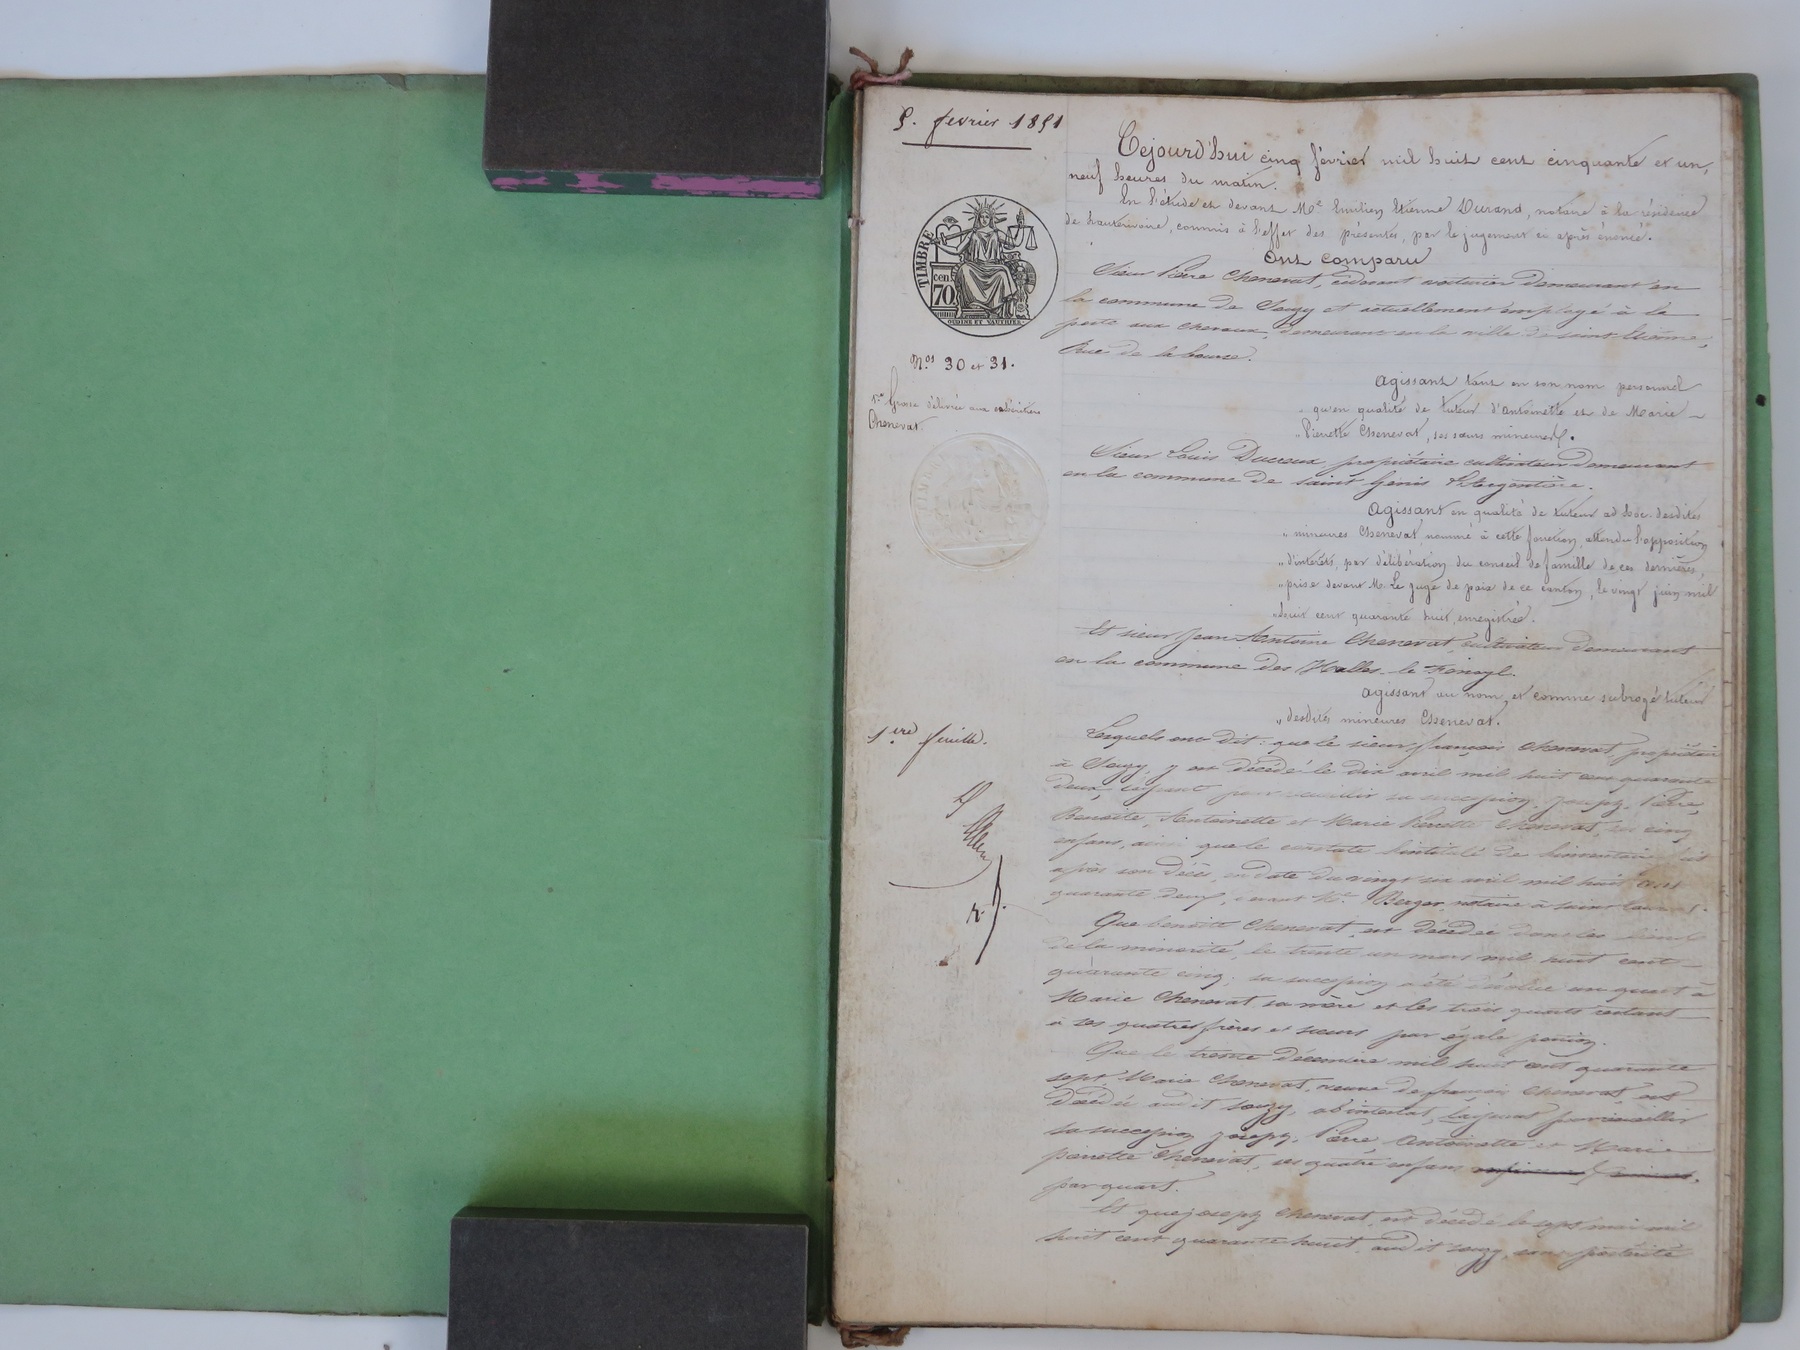 5. fevrier 1851
TIMBRE
cen.
70.
OUDINE ET VAUTHIER.
Nos 30 et 31.
1re Grosse délivrée aux cohéritiers
Chenevat.
1ere feuille.
Cejourd'hui cinq février mil huit cent cinquante et un,
neuf heures du matin.
En l'étude et devant Me Emilien Etienne Durand, notaire à la résidence
de hauterivoire, commis à l'effet des présentes, par le jugement ci après énoncé.
Ont comparu
Sieur Pierre Chenevat, cidevant voiturier demeurant en
la commune de Souzy et actuellement employé à la
poste aux chevaux, demeurant en la ville de saint Etienne,
Rue de la bourse.
Agissant tant en son nom personnel
" qu'en qualité de tuteur d'Antoinette et de Marie
" Pierrette Chenevat, ses sœurs mineures.
Sieur Louis Ducreux, propriétaire cultivateur demeurant
en la commune de saint Genis L'Argentière.
Agissant en qualité de tuteur ad hoc desdites
" mineures Chenevat, nommé à cette fonction, attendu l'opposition
" d'intérêts, par délibération du conseil de famille de ces dernières,
" prise devant M. Le juge de paix de ce canton, le vingt juin mil
huit cent quarante huit, enregistrée.
Et sieur Jean Antoine Chenevat, cultivateur demeurant
en la commune des Halles le Fenoyl.
Agissant au nom, et comme subrogé tuteur
" desdites mineures Chenevat.
Lesquels ont dit: que le sieur françois Chenevat, propriétaire
à Souzy, y est décédé le dix avril mil huit cent quarante
deux, laissant pour recueillir sa succession Joseph, Pierre,
Benoite, Antoinette et Marie Pierrette Chenevat, ses cinq
enfans, ainsi que le constate l'intitulé de l'inventaire fait
après son décès, en date du vingt six avril mil huit cent
quarante deux, devant Me Berger notaire à saint Laurent.
Que benoite Chenevat, est décédée dans les liens
de la minorité, le trente un mars mil huit cent
quarante cinq; sa succession a été dévolue un quart à
Marie Chenevat sa mère et les trois quarts restant
à ses quatres frères et sœurs par égale portion.
Que le treize décembre mil huit cent quarante
sept, Marie Chenevat, veuve de françois Chenevat est
décédée audit Souzy, ab intestat, laissant pour recueillir
sa succession Joseph, Pierre, Antoinette et Marie
pierrette Chenevat, ses quatre enfans
par quart.
Et que Joseph Chenevat, est décédé le sept mai mil
huit cent quarante huit, audit Souzy, sans postérité